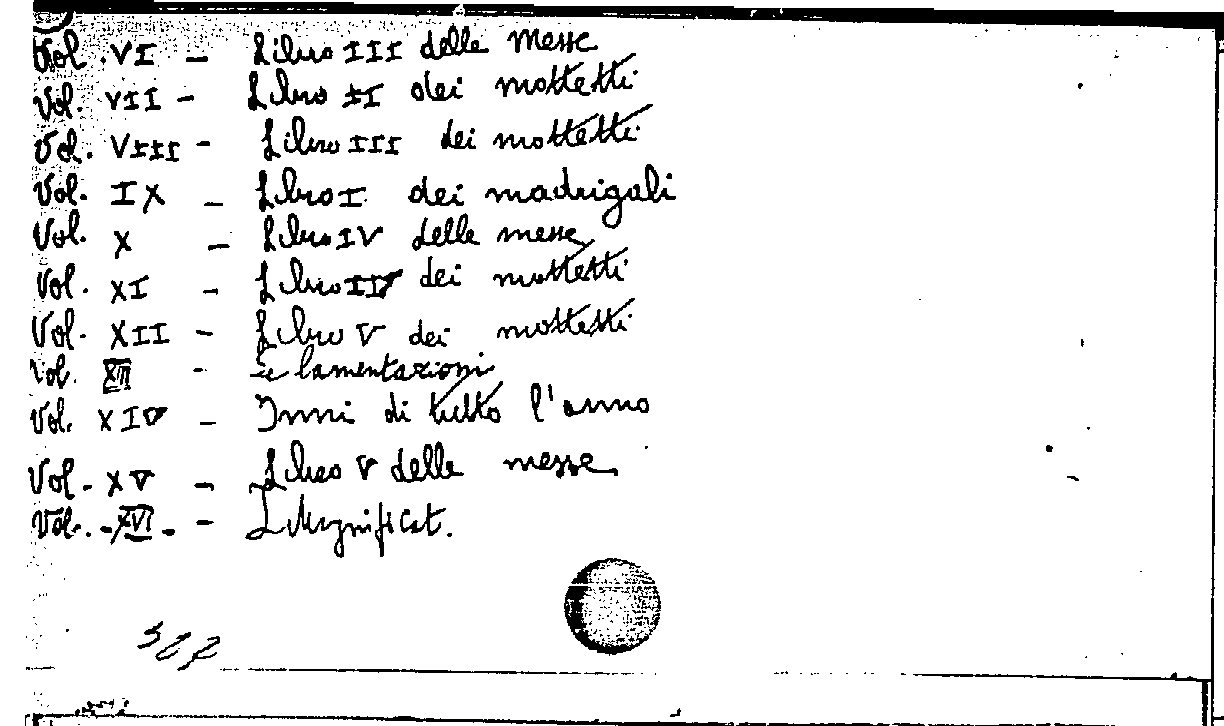 Vol. VI - Libro III delle Messe
Vol. VII - Libro II dei mottetti
Vol. VIII - Libro III dei mottetti
Vol. IX - Libro I dei madrigali
Vol. X - Libro IV delle messe
Vol. XI - Libro IV dei mottetti
Vol. XII - Libro V dei mottetti
Vol. XIII - Le lamentazioni
Vol. XIV - Inni di tutto l'anno
Vol. XV - Libro V delle messe
Vol. XVI - I Magnificat.